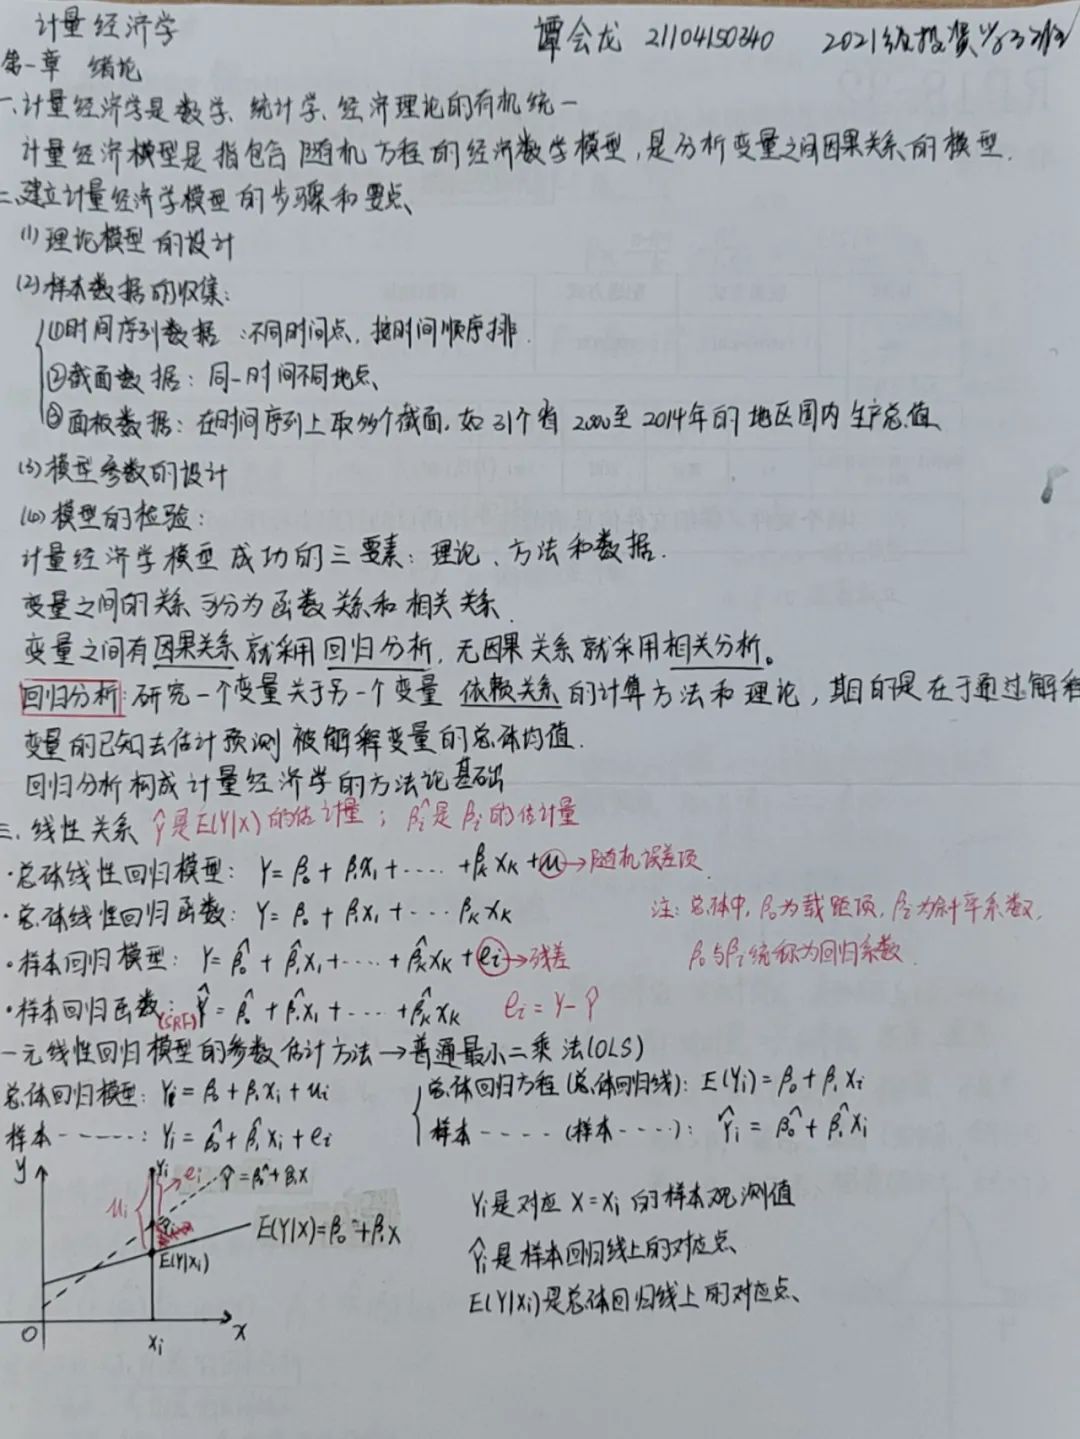 计量经济学
谭会龙 21104150340 2021级投资学3班
第一章 绪论
一、计量经济学是数学、统计学、经济理论的有机统一
计量经济模型是指包含随机方程的经济数学模型,是分析变量之间因果关系的模型.
二、建立计量经济学模型的步骤和要点
(1)理论模型的设计
(2)样本数据的收集:
①时间序列数据:不同时间点,按时间顺序排.
②截面数据:同一时间不同地点
③面板数据:在时间序列上取多个截面,如31个省2000至2014年的地区国内生产总值
(3)模型参数的设计
(4)模型的检验:
计量经济学模型成功的三要素:理论、方法和数据.
变量之间的关系可分为函数关系和相关关系.
变量之间有因果关系就采用回归分析,无因果关系就采用相关分析。
回归分析:研究一个变量关于另一个变量 依赖关系的计算方法和理论,其目的是在于通过解释
变量的已知去估计预测被解释变量的总体均值.
回归分析构成计量经济学的方法论基础
三.线性关系 Ŷ是E(Y|X)的估计量;β̂i是βi的估计量
·总体线性回归模型:Y=β₀+β₁X₁+····+βₖXₖ+μ→随机误差项
·总体线性回归函数:Y=β₀+β₁X₁+···βₖXₖ
注:总体中,β₀为截距项,βi为斜率系数,
·样本回归模型:Y=β̂₀+β̂₁X₁+····+β̂ₖXₖ+ei→残差
β₀与βi统称为回归系数.
·样本回归函数:(SRF)Ŷ=β̂₀+β̂₁X₁+····+β̂ₖXₖ ei=Y-Ŷ
一元线性回归模型的参数估计方法→普通最小二乘法(OLS)
总体回归模型:Yi=β₀+β₁Xi+ui
总体回归方程(总体回归线):E(Yi)=β₀+β₁Xi
样本-----:Yi=β̂₀+β̂₁Xi+ei
样本----(样本----):Ŷi=β̂₀+β̂₁Xi
y
Yi
ei
Ŷ=β̂₀+β̂₁X
ui
E(Y|X)=β₀+β₁X
E(Y|Xi)
O
Xi
X
Yi是对应X=Xi的样本观测值
Ŷi是样本回归线上的对应点
E(Y|Xi)是总体回归线上的对应点